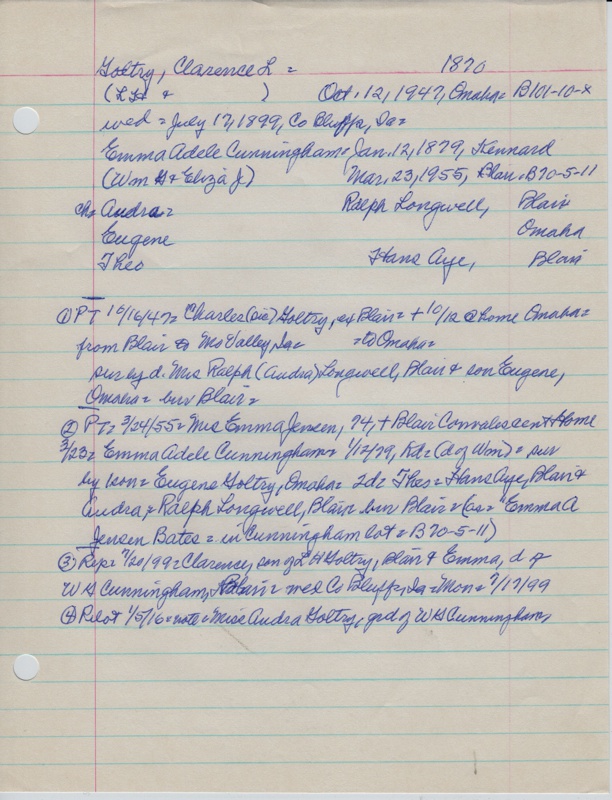 Goltry, Clarence L = 1870
(L H & ) Oct. 12, 1947, Omaha = B101-10-x
wed = July 17, 1899, Co Bluffs, Ia =
Emma Adele Cunningham = Jan. 12, 1879, Kennard
(Wm H & Eliza J) Mar. 23, 1955, Blair. B70-5-11
ch = Audra = Ralph Longwell, Blair
Eugene Omaha
Theo Hans Aye, Blair
① PT 10/16/47 = Charles (sic) Goltry, ex Blair = + 10/12 @ home Omaha =
from Blair to Mo Valley, Ia = = to Omaha =
sur by d. Mrs Ralph (Audra) Longwell, Blair & son Eugene,
Omaha = bur Blair =
② PT = 3/24/55 = Mrs Emma Jensen, 74, + Blair Convalescent Home
3/23 = Emma Adele Cunningham = 1/12/79, Kd = (d of Wm) = sur
by 1 son = Eugene Goltry, Omaha = 2d = Theo = Hans Aye, Blair &
Audra = Ralph Longwell, Blair bur Blair = (as = "Emma A
Jensen Bates = in Cunningham lot = B70-5-11)
③ Rep = 7/20/99 = Clarence, son of L H Goltry, Blair & Emma, d of
W H Cunningham, Blair = wed Co Bluffs, Ia = Mon = 7/17/99
④ Pilot 1/5/16 = note = Miss Audra Goltry, grd of W H Cunningham,